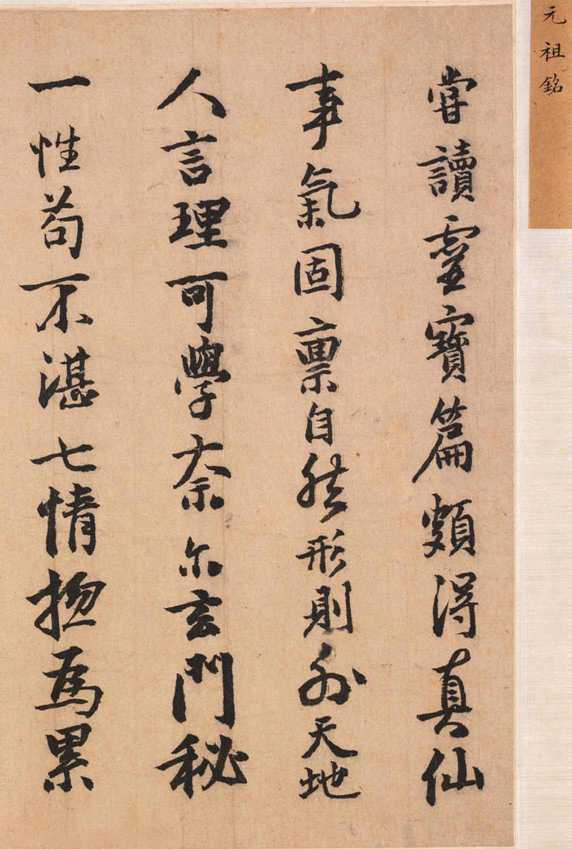 元祖銘
甞讀靈寶篇頗得真仙
事氣固禀自然形則外天地
人言理可學奈尔玄門秘
一性苟不湛七情揔為累